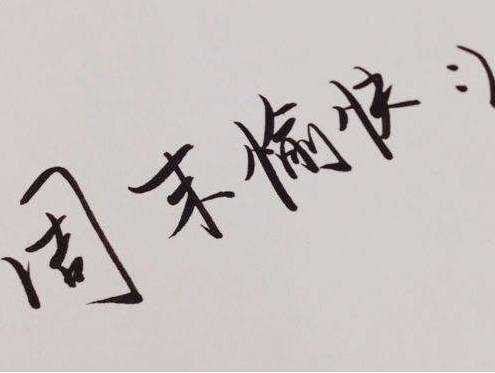 周末愉快:)